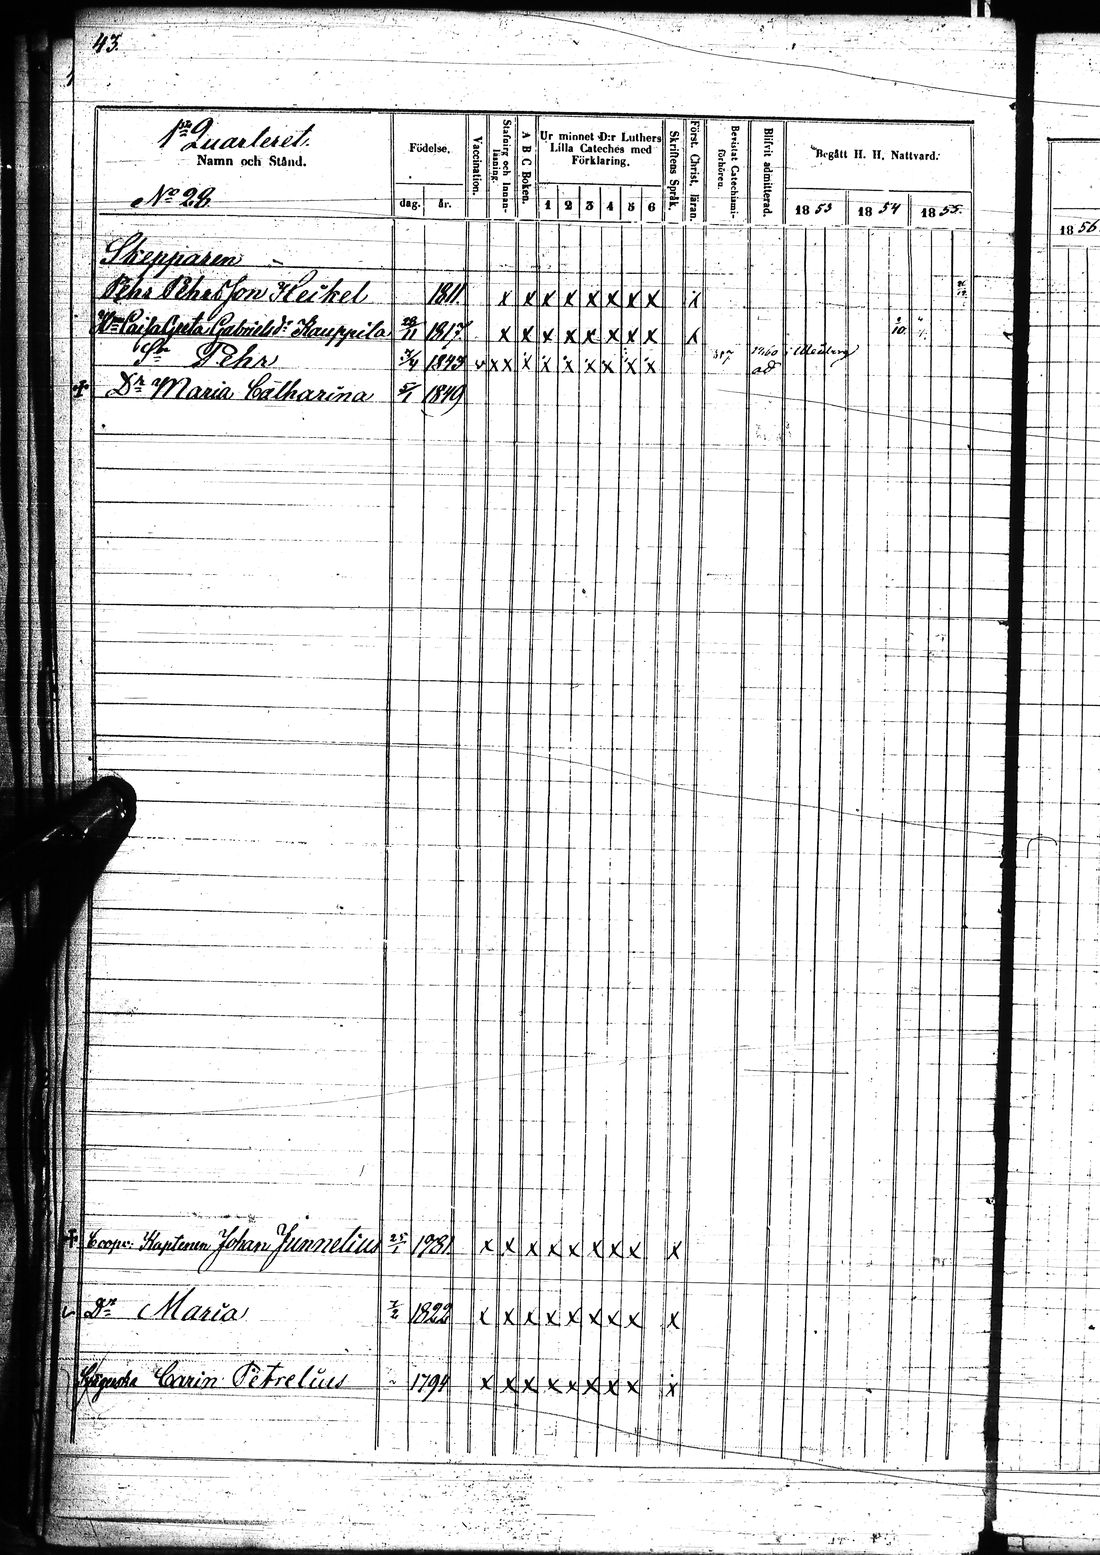 43.
1:sta Quarteret.
Namn och Stånd.
No 28.
Födelse.
dag. år.
Vaccination.
Stafning och Innanläsning.
A B C Boken.
Ur minnet D:r Luthers Lilla Cateches med Förklaring.
1 2 3 4 5 6
Skriftens Språk.
Först. Christ. läran.
Bevistat Catechismiförhören.
Blifvit admitterad.
Begått H. H. Nattvard.
1853 1854 1855.
1856
Skepparen
Pehr Pehrsson Heikel 1811 x x x x x x x x x
Hu Caisa Greta Gabrielsdr Kauppila 28/11 1817 x x x x x x x x x
Sn Pehr 7/4 1843 v x x x x x x x x x 1860
Dr Maria Catharina 5/1 1849
Coopv. Kaptenen Johan Junnelius 25/1 1781 x x x x x x x x x
Dr Maria 7/2 1822 x x x x x x x x x
Carin Petrelius 1794 x x x x x x x x x